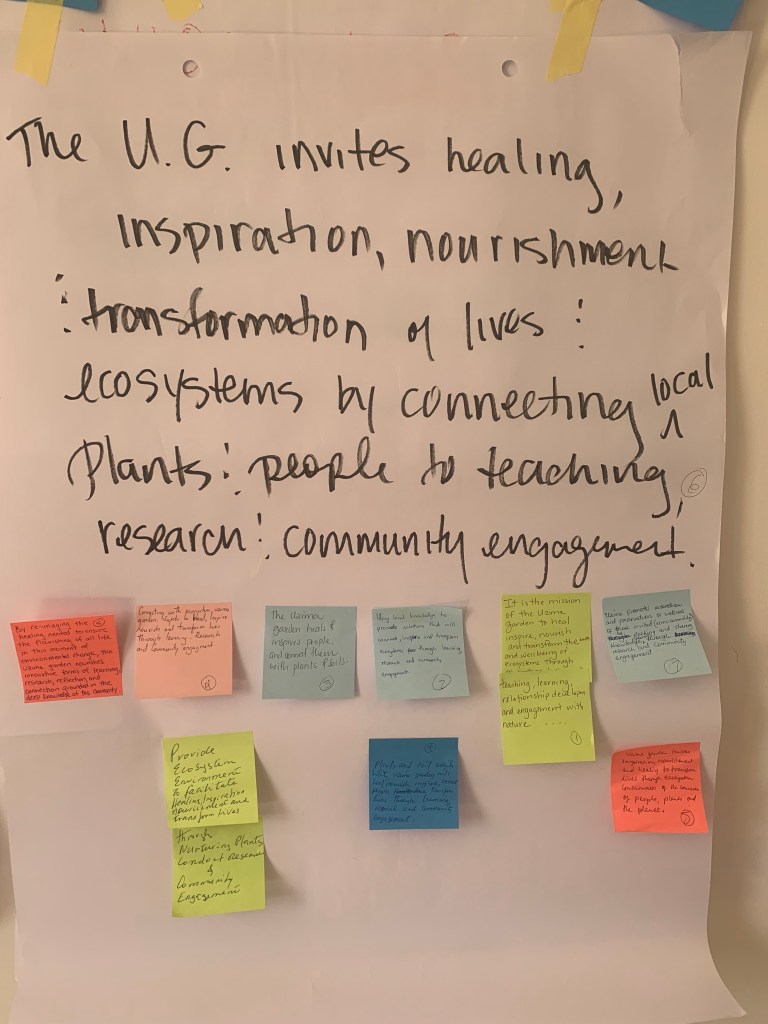 The U.G. invites healing,
inspiration, nourishment
: transformation of lives :
ecosystems by connecting local
plants : people to teaching,
research : community engagement.
6
By re-imaging the
healing needed to ensure
the flourishing of all life
in this moment of
environmental change, the
Uzima garden nourishes
innovative forms of learning,
research, reflection, and
connection grounded in the
deep knowledge of the community
garden to heal, inspire
nourish and transform lives
Through learning, Research
and Community engagement.
The Uzima
garden heals &
inspires people,
and animal them
with plants & soils
5
Using local knowledge to
provide solutions that will
nourish, inspire and transform
ecosystems through learning,
research and community
engagement
7
It is the mission
of the Uzima
garden to heal
inspire, nourish
and transform the
and wellbeing of
ecosystems through
teaching, learning,
relationship development
and engagement with
nature ....
1
Uzima promotes
research and community
engagement
Provide
Ecosystem
Environment
To facilitate
Healing, Inspiration
nourishment and
transform lives
through
Nurturing Plants
Conduct Research
&
Community
Engagement
Plants and soil
lives through learning,
research and community
engagement.
inspiring nourishment
and healing to transform
lives through ecosystem
of people, plants and
the planet.